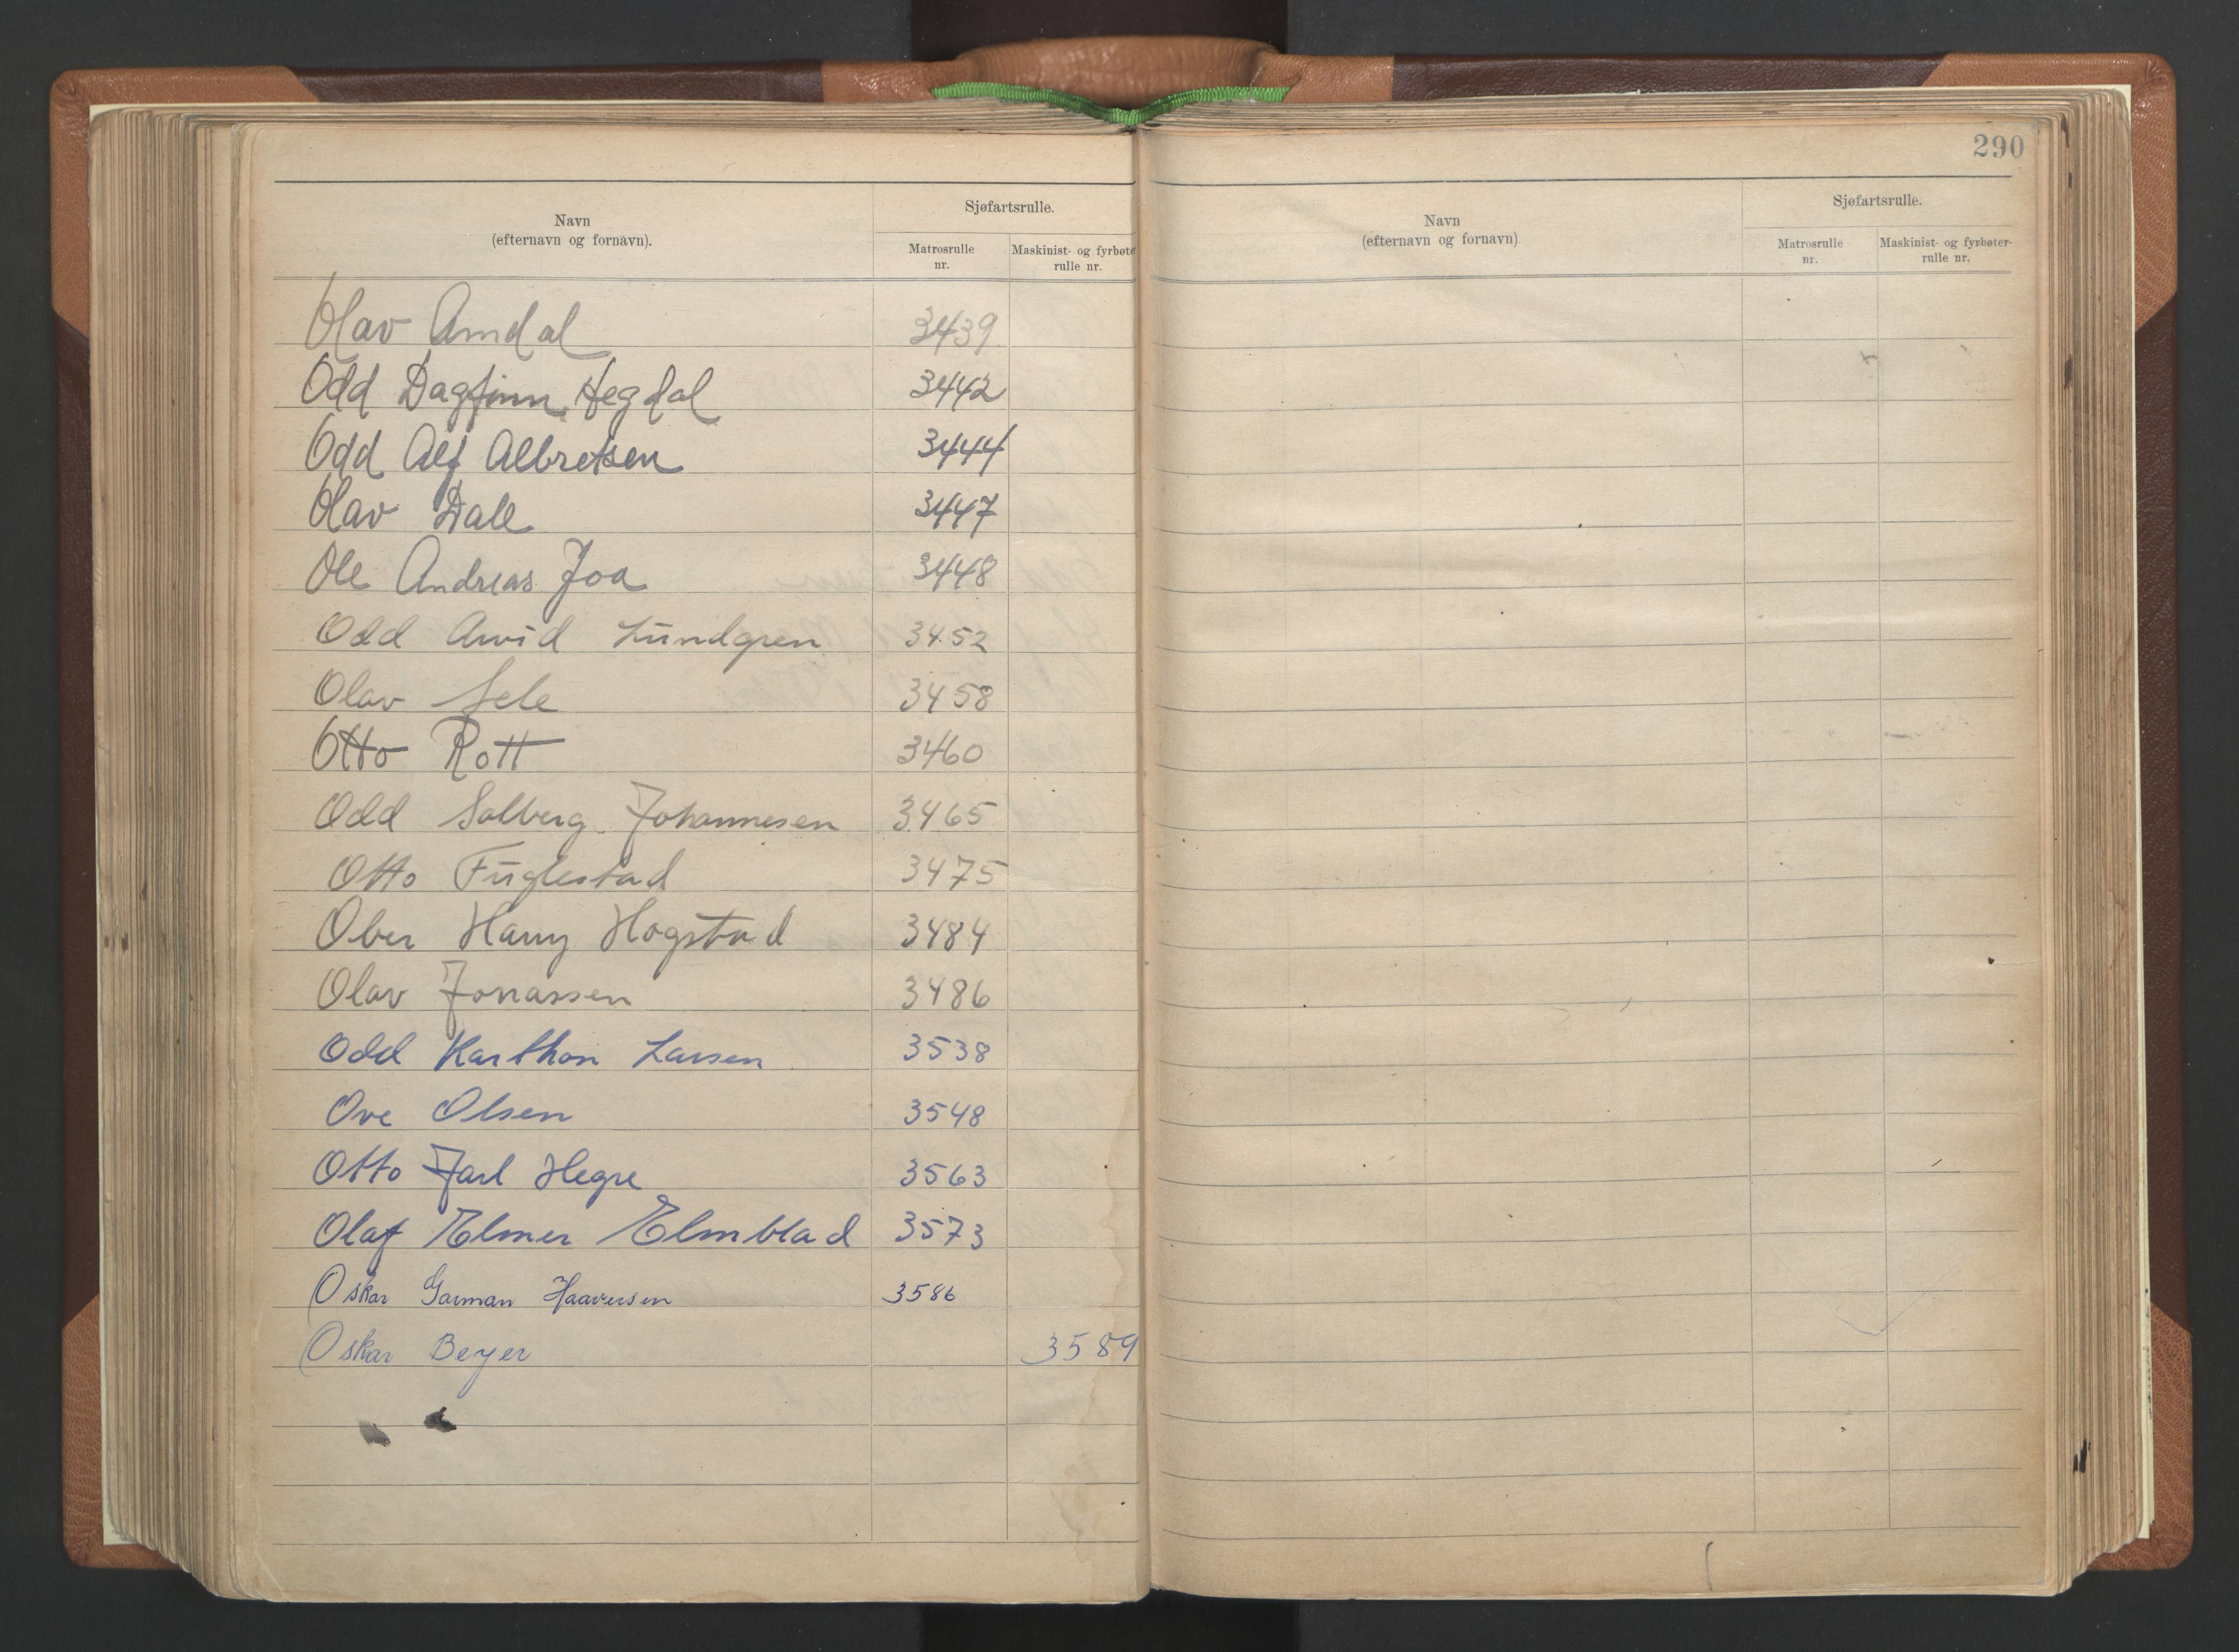 290
Navn
(efternavn og fornavn).
Sjøfartsrulle.
Matrosrulle
nr.
Maskinist- og fyrbøte
rulle nr.
Olav Amdal 3439
Odd Dagfinn Hegdal 3442
Odd Alf Albretsen 3444
Olav Dale 3447
Ole Andreas Joa 3448
Odd Arvid Lundgren 3452
Olav Sele 3458
Otto Rott 3460
Odd Solberg Johannesen 3465
Otto Fuglestad 3475
Ober Harry Hogstad 3484
Olav Jonassen 3486
Odd Karthon Larsen 3538
Ove Olsen 3548
Otto Jarl Hegre 3563
Olaf Elmer Elmblad 3573
Oskar Garman Haaversen 3586
Oskar Beyer 3589
Navn
(efternavn og fornavn)
Sjøfartsrulle.
Matrosrulle
nr.
Maskinist- og fyrbøter-
rulle nr.